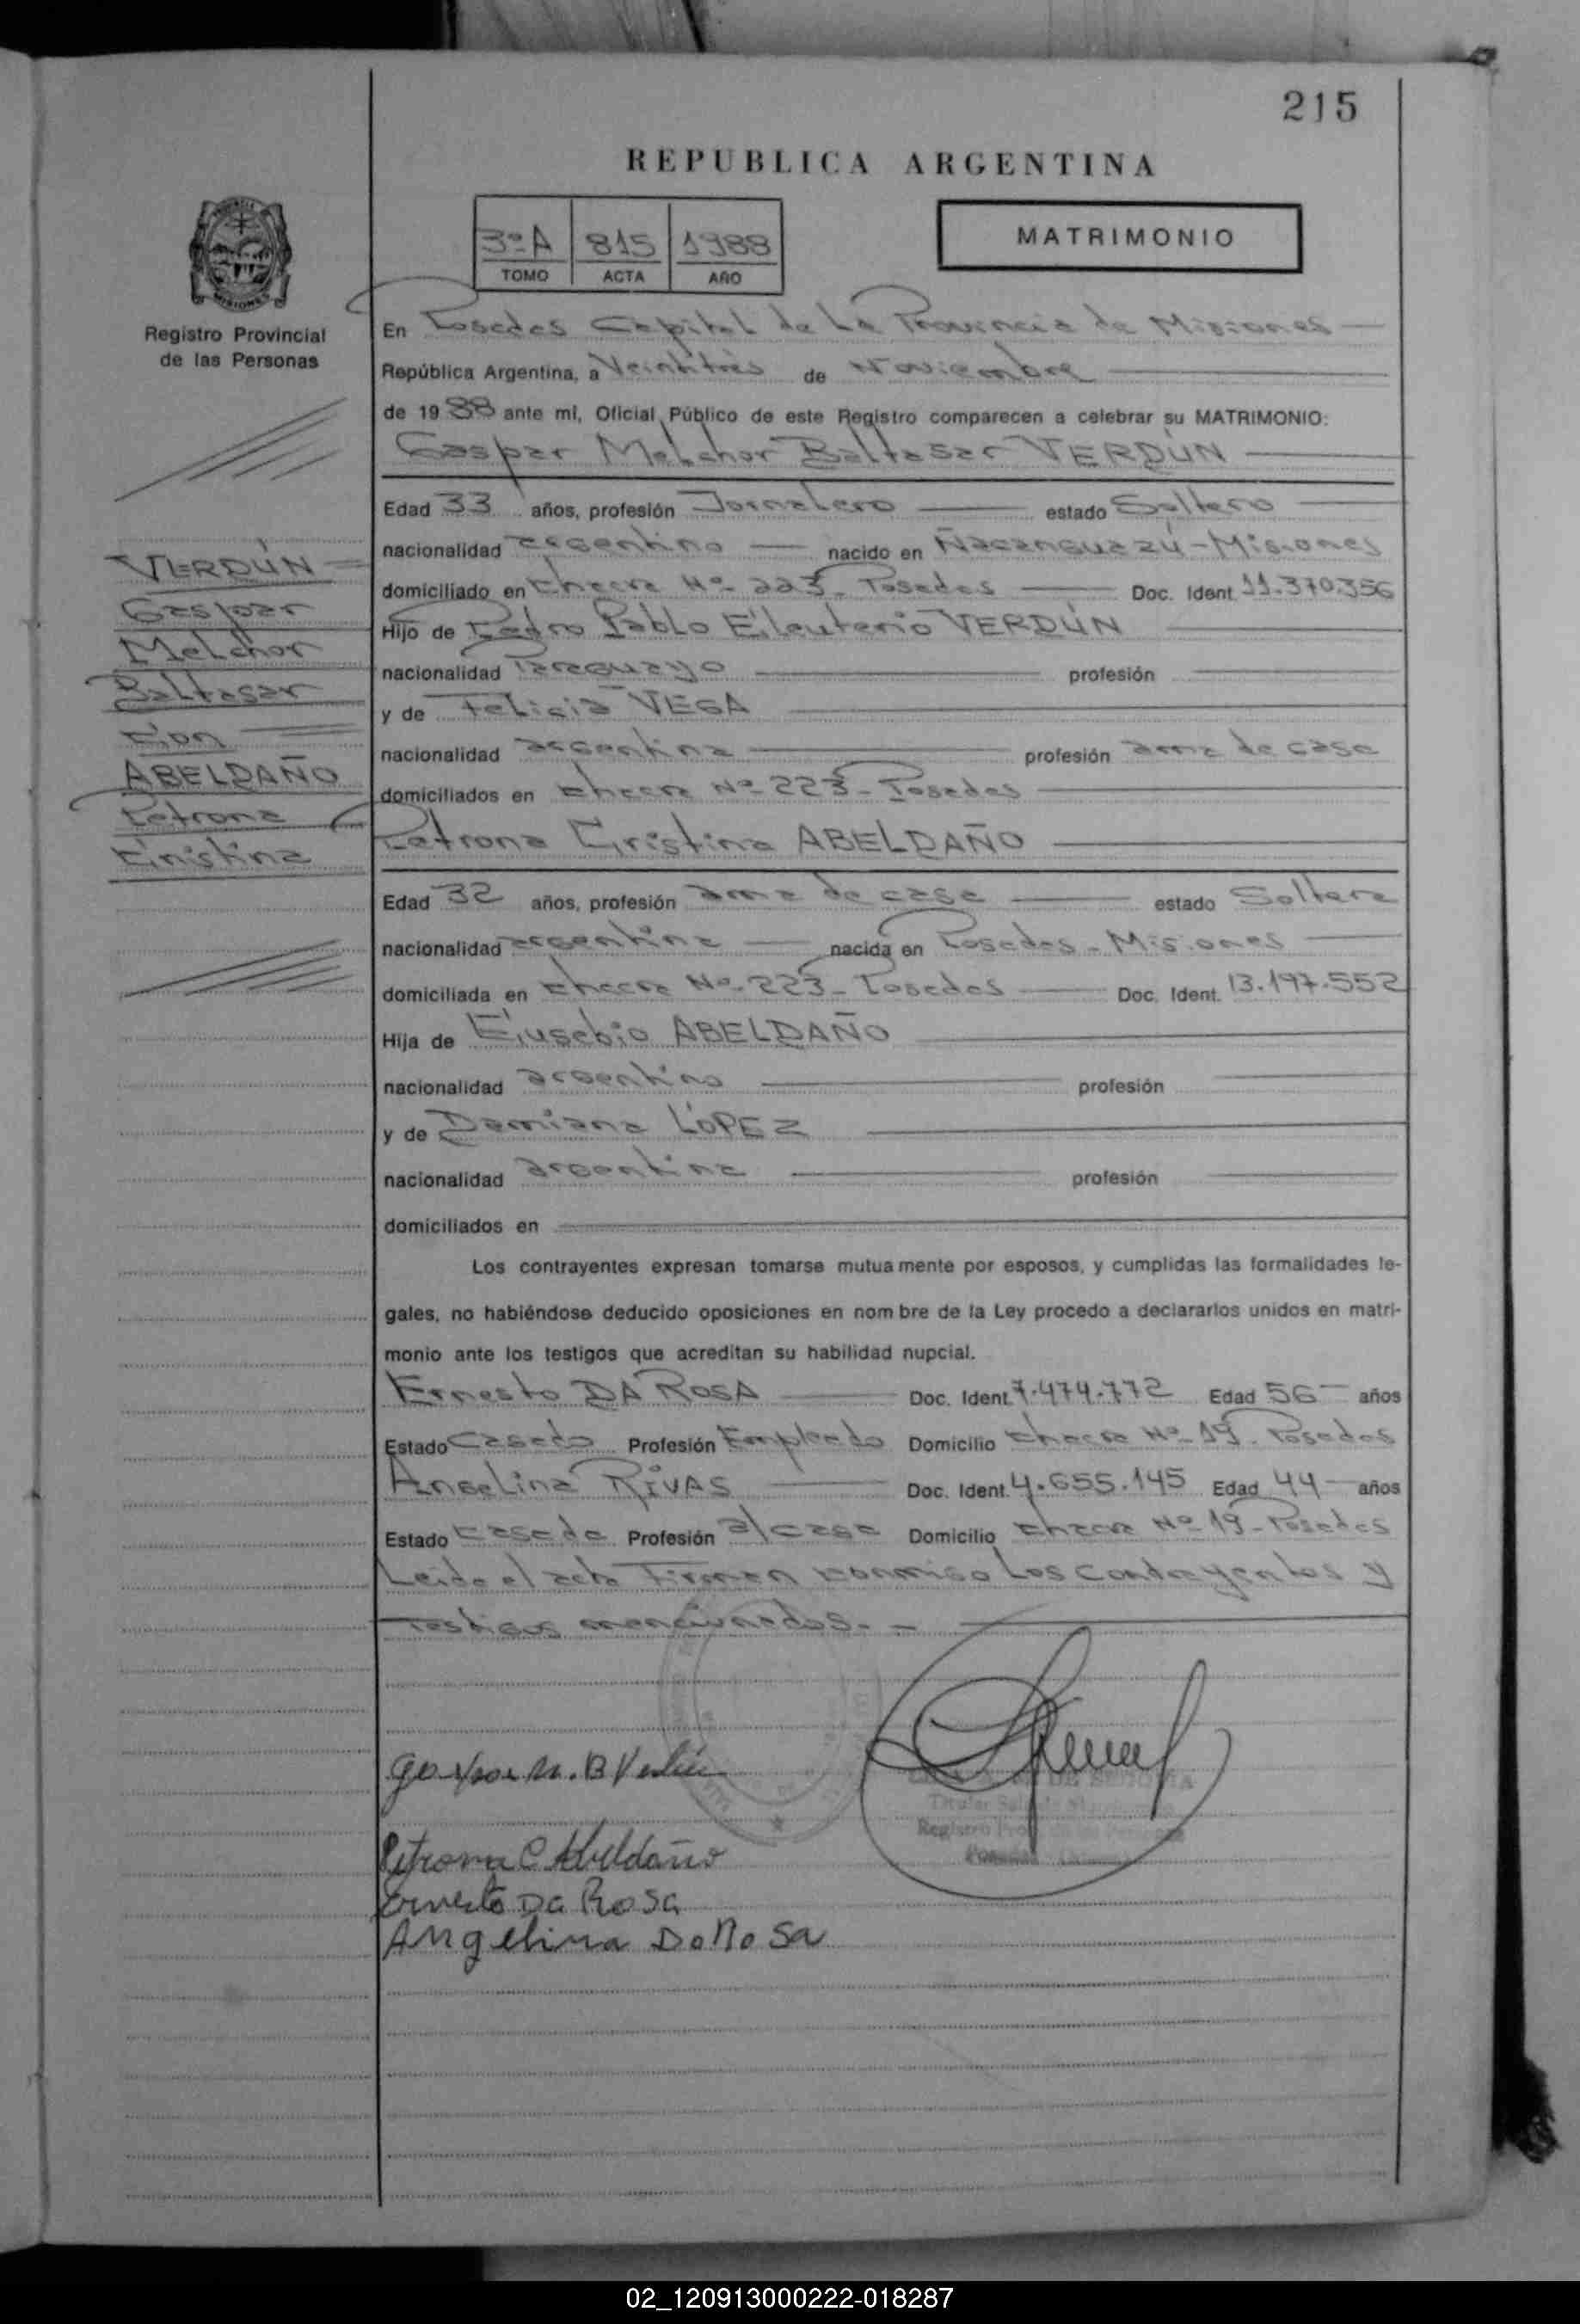 215
REPUBLICA ARGENTINA
3º A 815 1988
TOMO ACTA AÑO
MATRIMONIO
Registro Provincial
de las Personas
VERDÚN
Gaspar
Melchor
Baltasar
Con
ABELDAÑO
Petrona
Cristina
En Posadas Capital de La Provincia de Misiones
República Argentina, a Veintitrés de Noviembre
de 1988 ante mí, Oficial Público de este Registro comparecen a celebrar su MATRIMONIO:
Gaspar Melchor Baltasar VERDÚN
Edad 33 años, profesión Jornalero estado Soltero
nacionalidad argentino nacido en Ñacanguazú - Misiones
domiciliado en Chacra Nº 223 - Posadas Doc. Ident. 11.370.356
Hijo de Pedro Pablo Eleuterio VERDÚN
nacionalidad Paraguayo profesión
y de Felicia VEGA
nacionalidad argentina profesión ama de casa
domiciliados en Chacra Nº 223 - Posadas
Petrona Cristina ABELDAÑO
Edad 32 años, profesión ama de casa estado Soltera
nacionalidad argentina nacida en Posadas - Misiones
domiciliada en Chacra Nº 223 - Posadas Doc. Ident. 13.197.552
Hija de Eusebio ABELDAÑO
nacionalidad argentino profesión
y de Damiana LÓPEZ
nacionalidad argentina profesión
domiciliados en
Los contrayentes expresan tomarse mutuamente por esposos, y cumplidas las formalidades le-
gales, no habiéndose deducido oposiciones en nombre de la Ley procedo a declararlos unidos en matri-
monio ante los testigos que acreditan su habilidad nupcial.
Ernesto DA ROSA Doc. Ident. 7.474.772 Edad 56 años
Estado Casado Profesión Empleado Domicilio Chacra Nº 19 - Posadas
Angelina RIVAS Doc. Ident. 4.655.145 Edad 44 años
Estado Casada Profesión a/casa Domicilio Chacra Nº 19 - Posadas
Leída el acta Firman conmigo Los contrayentes y
Testigos mencionados. -
Gaspar M. B Verdún
Titular
Registro
Petrona C Abeldaño
Ernesto Da Rosa
Angelina Da Rosa
02_120913000222-018287